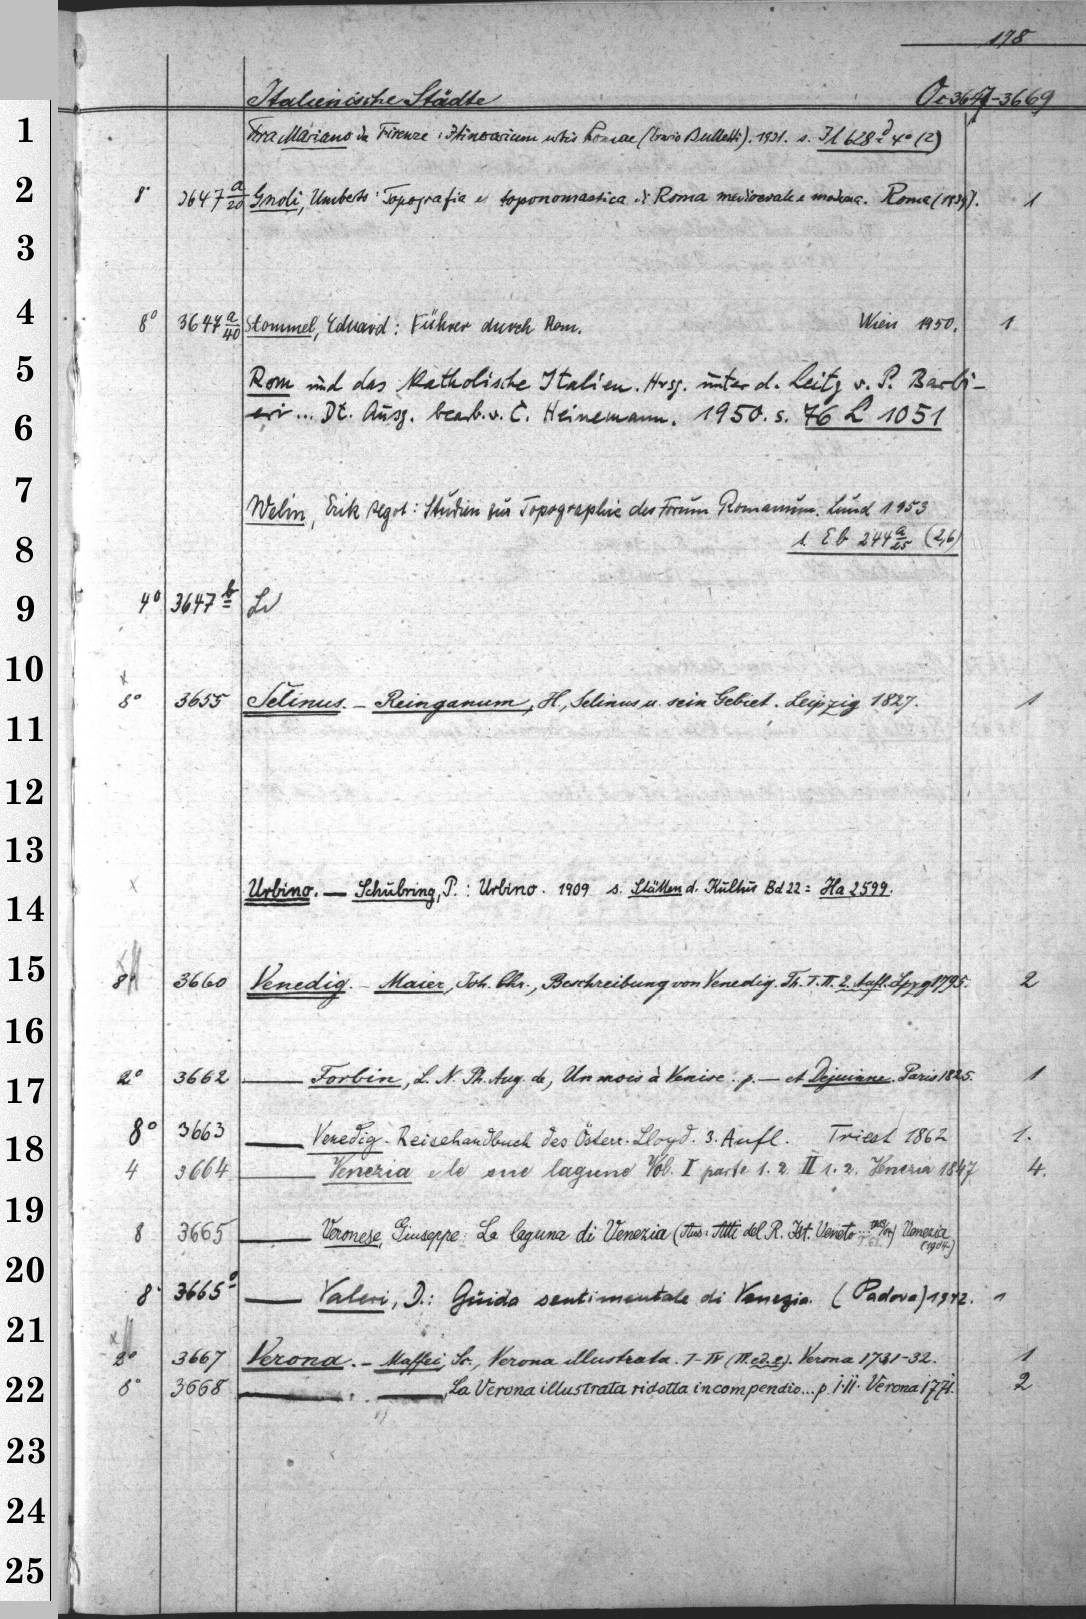 178
Italienische Städte Oc 3647-3669
1 Fra Mariano da Firenze: Itinerarium urbis Romae (Enrico Bulletti). 1931. s. 4° (2)
2 8° 3647 a/20 Gnoli, Umberto: Topografia e toponomastica di Roma medioevale e moderna. Roma (1939). 1
3
4 8° 3647 a/40 Stommel, Eduard: Führer durch Rom. Wien 1950. 1
5 Rom und das katholische Italien. Hrsg. unter d. Leitg v. P. Barbi-
6 eri ... Dt. Ausg. bearb. v. C. Heinemann. 1950. s. 76 L 1051
7 Welin, Erik : Studien zur Topographie des Forum Romanum. Lund 1953
8 s. Eb 244 a/25 (2,6)
9 4° 3647 b
10
11 x 8° 3655 Selinus. – Reinganum, H., Selinus u. sein Gebiet. Leipzig 1827. 1
12
13
14 x Urbino. — Schubring, P.: Urbino. 1909 s. Stätten d. Kultur Bd 22 = Ha 2599.
15 8° 3660 Venedig. – Maier, Joh. Chr., Beschreibung von Venedig. Th. I. II. 2. Aufl. Lpzg 1795. 2
16
17 2° 3662 — Forbin, L. N. Ph. Aug. de, Un mois à Venise. p. — et Dejuinne. Paris 1825. 1
18 8° 3663 — Venedig. Reisehandbuch des Österr. Lloyd. 3. Aufl. Triest 1862 1.
4 3664 — Venezia e le sue lagune Vol. I parte 1. 2 II 1. 2. Venezia 1847 4.
19 8 3665 — Veronese, Giuseppe: La laguna di Venezia (Aus: Atti del R. Ist. Veneto ...) Venezia (1904)
20 8° 3665 — Valeri, D.: Guida sentimentale di Venezia. (Padova) 1942. 1
21 x 2° 3667 Verona. – Maffei, Sc., Verona illustrata. I–IV (II. ed. 2). Verona 1731–32. 1
22 8° 3668 — . —, La Verona illustrata ridotta in compendio... p. I. II. Verona 1771. 2
23
24
25